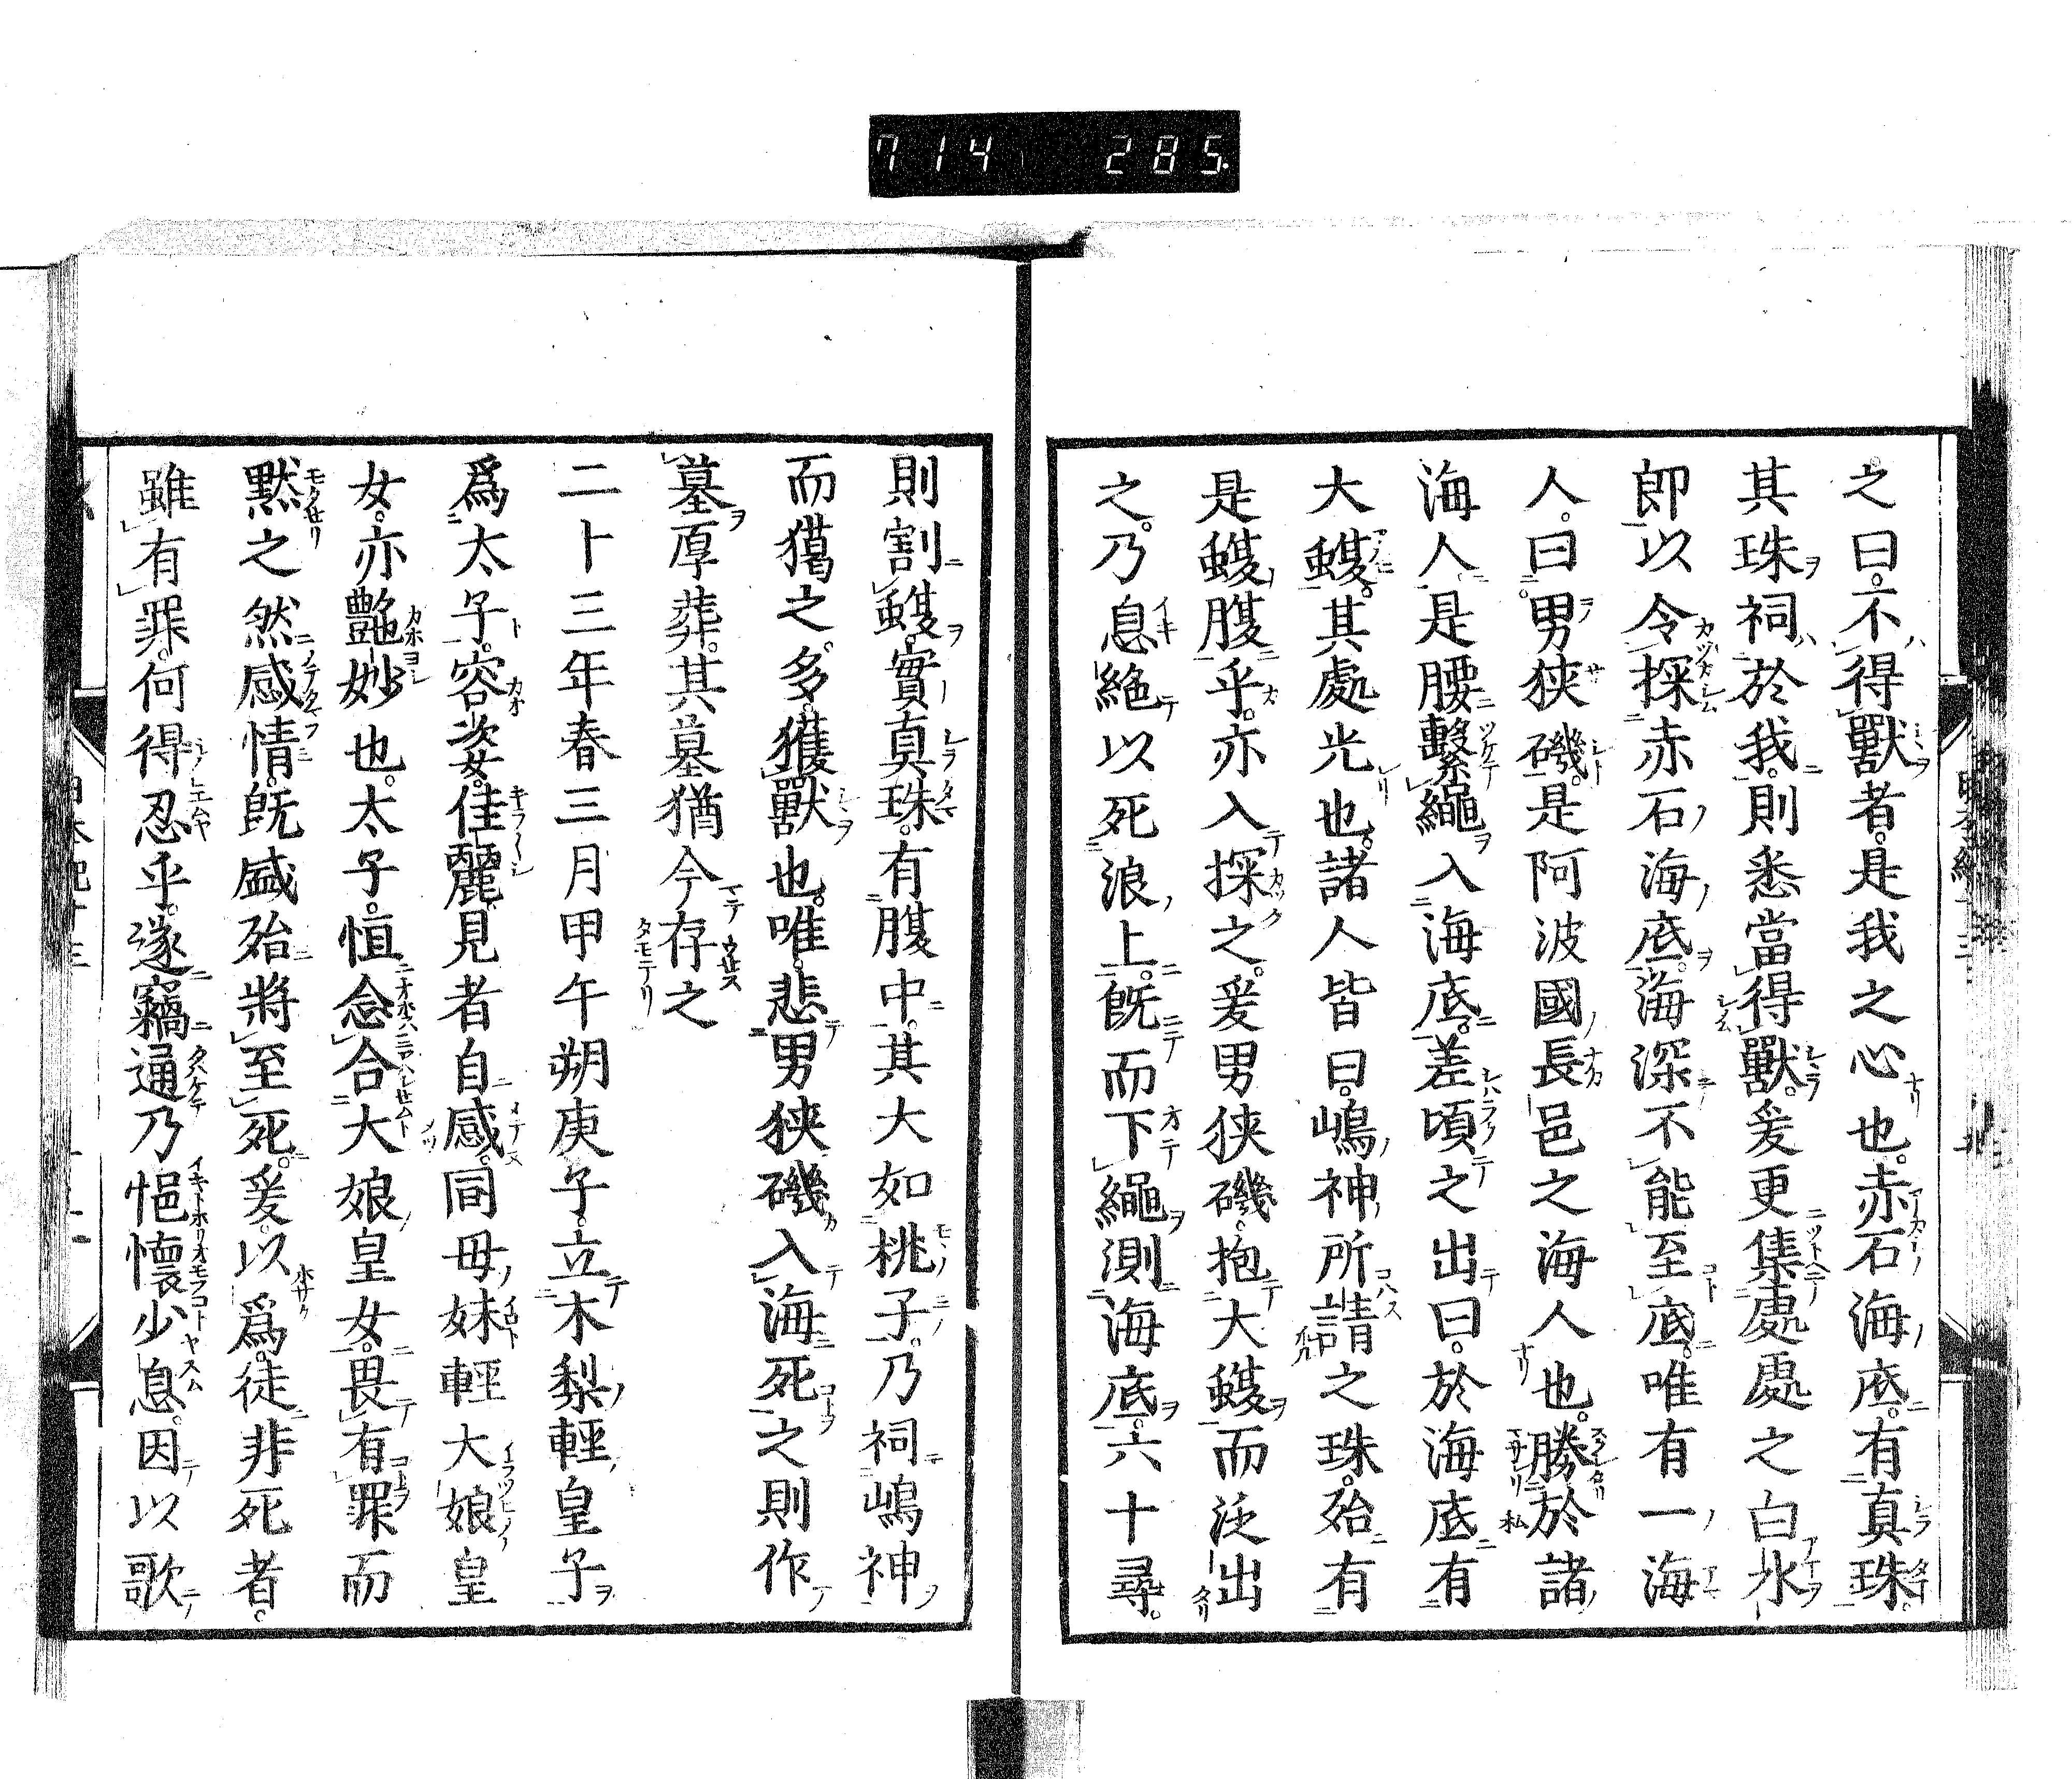 714 285
之曰不得獸者是我之心也赤石海底有真珠
其珠祠於我則悉當得獸爰更集處處之白水
即以令探赤石海底海深不能至底唯有一海
人曰男狹磯是阿波國長邑之海人也勝於諸
海人是腰繫繩入海底差頃之出曰於海底有
大蝮其處光也諸人皆曰嶋神所請之珠殆有
是蝮腹乎亦入探之爰男狹磯抱大蝮而泛出
之乃息絶以死浪上既而下繩測海底六十尋
則割蝮實真珠有腹中其大如桃子乃祠嶋神
而獦之多獲獸也唯悲男狹磯入海死之則作
墓厚葬其墓猶今存之
二十三年春三月甲午朔庚子立木梨輕皇子
爲太子容姿佳麗見者自感同母妹輕大娘皇
女亦艷妙也太子恒念合大娘皇女畏有罪而
黙之然感情既盛殆將至死爰以爲徒非死者
雖有罪何得忍乎遂竊通乃悒懷少息因以歌